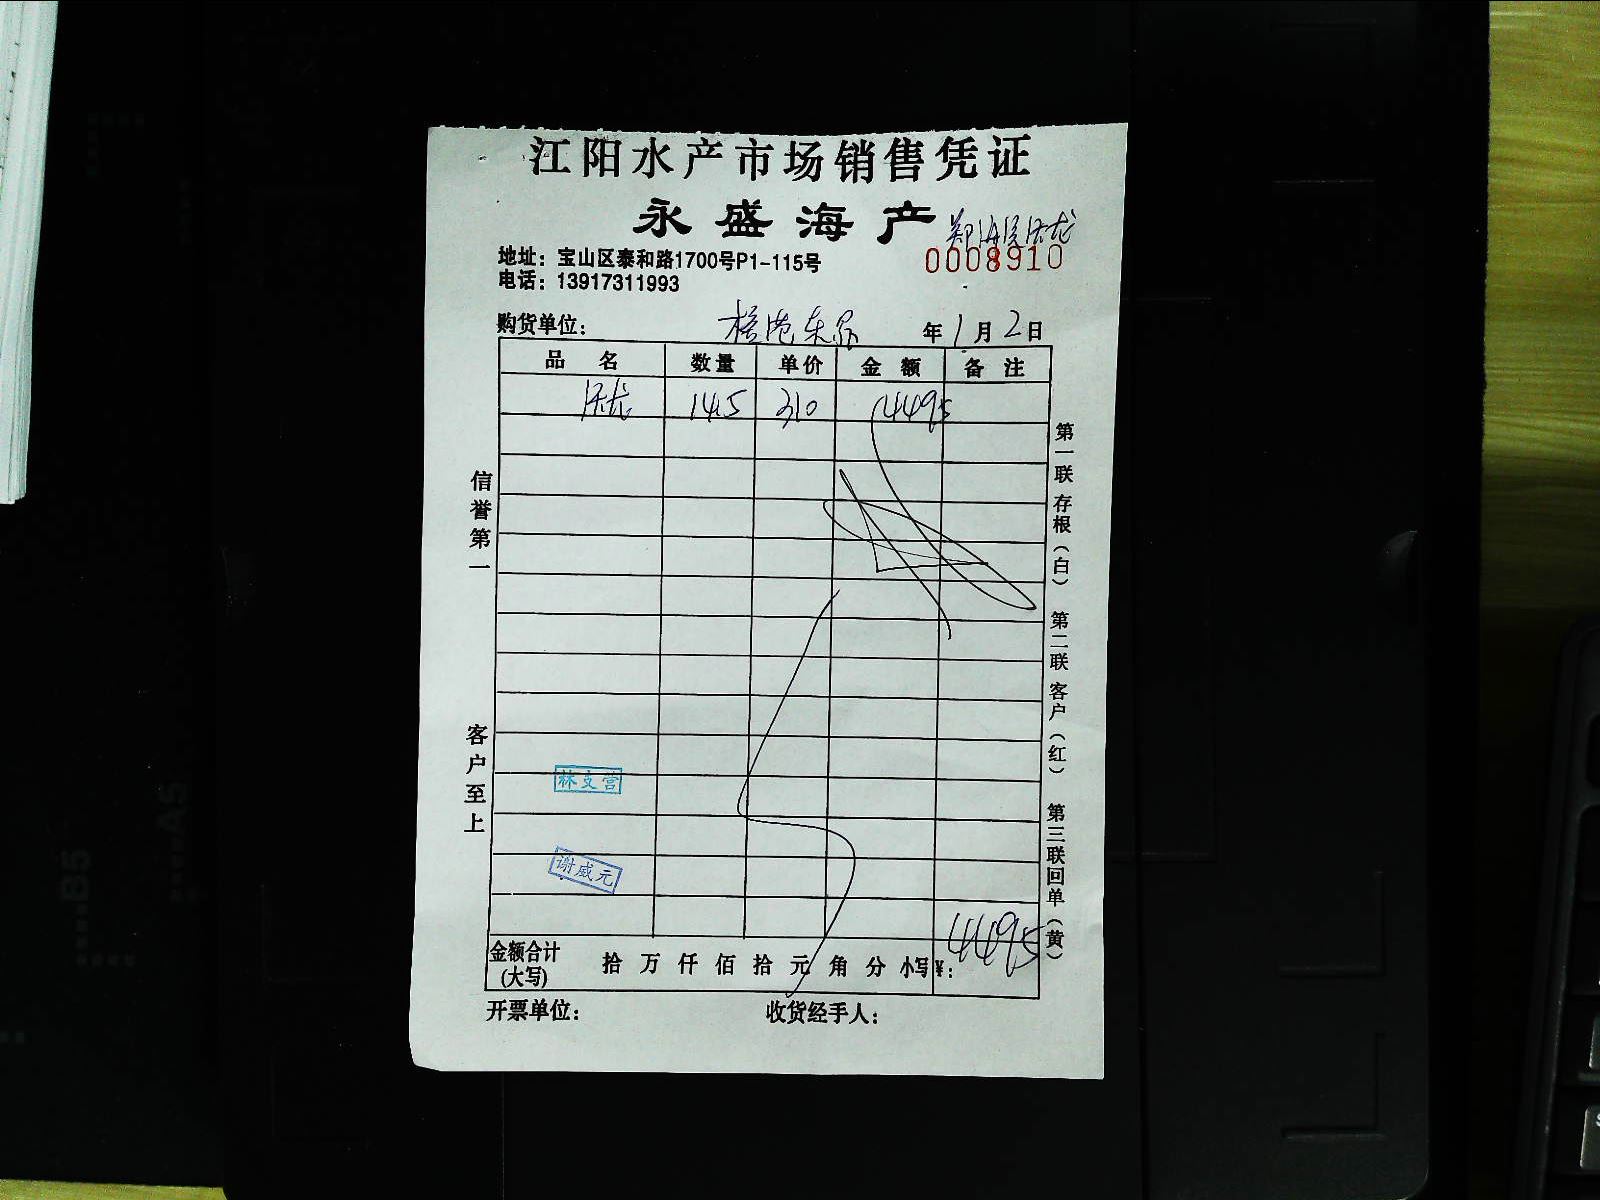 江阳水产市场销售凭证
永盛海产
地址：宝山区泰和路1700号P1-115号
0008910
电话：13917311993
购货单位： 年1月2日
品名 数量 单价 金额 备注
14.5 310 4495
信誉第一
客户至上
林支营
谢威元
第一联 存根（白）
第二联 客户（红）
第三联 回单（黄）
金额合计（大写） 拾 万 仟 佰 拾 元 角 分 小写¥：4495
开票单位： 收货经手人：